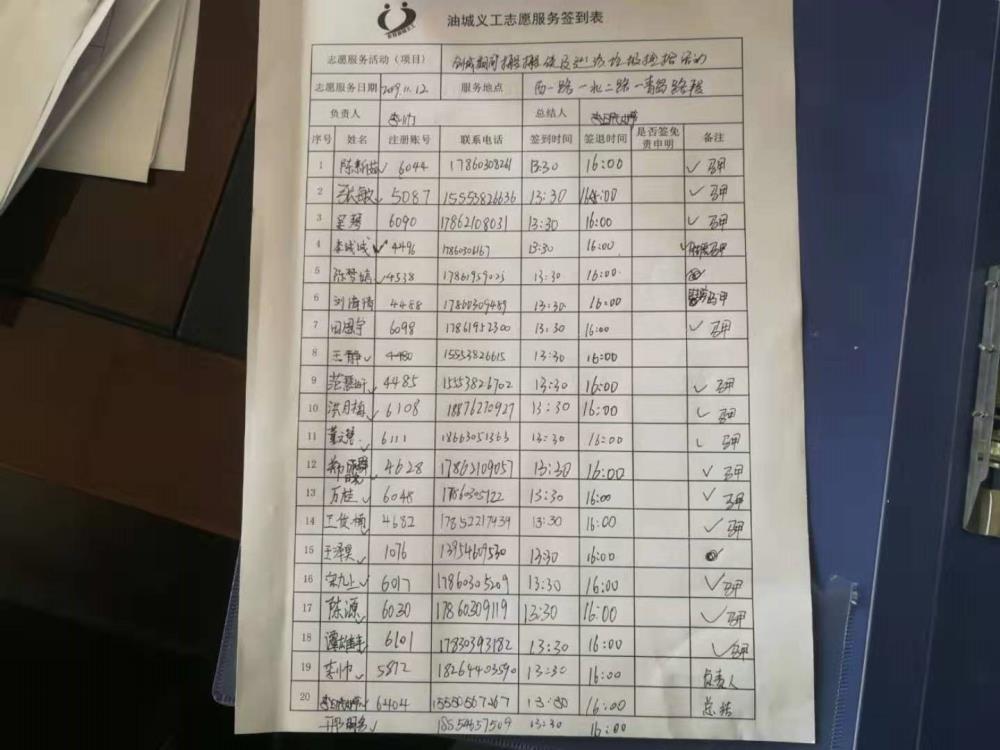 油城义工志愿服务签到表
志愿服务活动（项目）
志愿服务日期 2019.11.12 服务地点 西一路一北二路一青岛路段
负责人 李帅 总结人
序号 姓名 注册账号 联系电话 签到时间 签退时间 是否签免责申明 备注
1 陈新茹 6044 17860308261 13:30 16:00 ✓ 马甲
2 张敏 5087 15553826636 13:30 16:00 ✓ 马甲
3 吴琴 6090 17862108031 13:30 16:00 ✓ 马甲
4 李诚诚 ✓ 4496 17860306167 13:30 16:00 马甲
5 陈梦婧 ✓ 4538 17861959025 13:30 16:00
6 刘海倩 4488 17860309489 13:30 16:00 马甲
7 田恩宇 6098 17861952300 13:30 16:00 ✓ 马甲
8 王静 ✓ 4480 15553826615 13:30 16:00
9 范慧昕 4485 15553826702 13:30 16:00 ✓ 马甲
10 洪月梅 6108 18876270927 13:30 16:00 ✓ 马甲
11 6111 18663051363 13:30 16:00 ✓ 马甲
12 4628 17862109057 13:30 16:00 ✓ 马甲
13 万桂 ✓ 6048 17860305122 13:30 16:00 ✓ 马甲
14 王俊楠 ✓ 4682 17852217439 13:30 16:00 ✓ 马甲
15 王泽昊 ✓ 1076 13954609530 13:30 16:00
16 宋九上 ✓ 6017 17860305209 13:30 16:00 ✓ 马甲
17 陈源 ✓ 6030 17860309119 13:30 16:00 ✓ 马甲
18 6101 17830393182 13:30 16:00 ✓ 马甲
19 李帅 ✓ 5872 18264403590 13:30 16:00 负责人
20 6404 15550567267 13:30 16:00 总结
18554657509 13:30 16:00